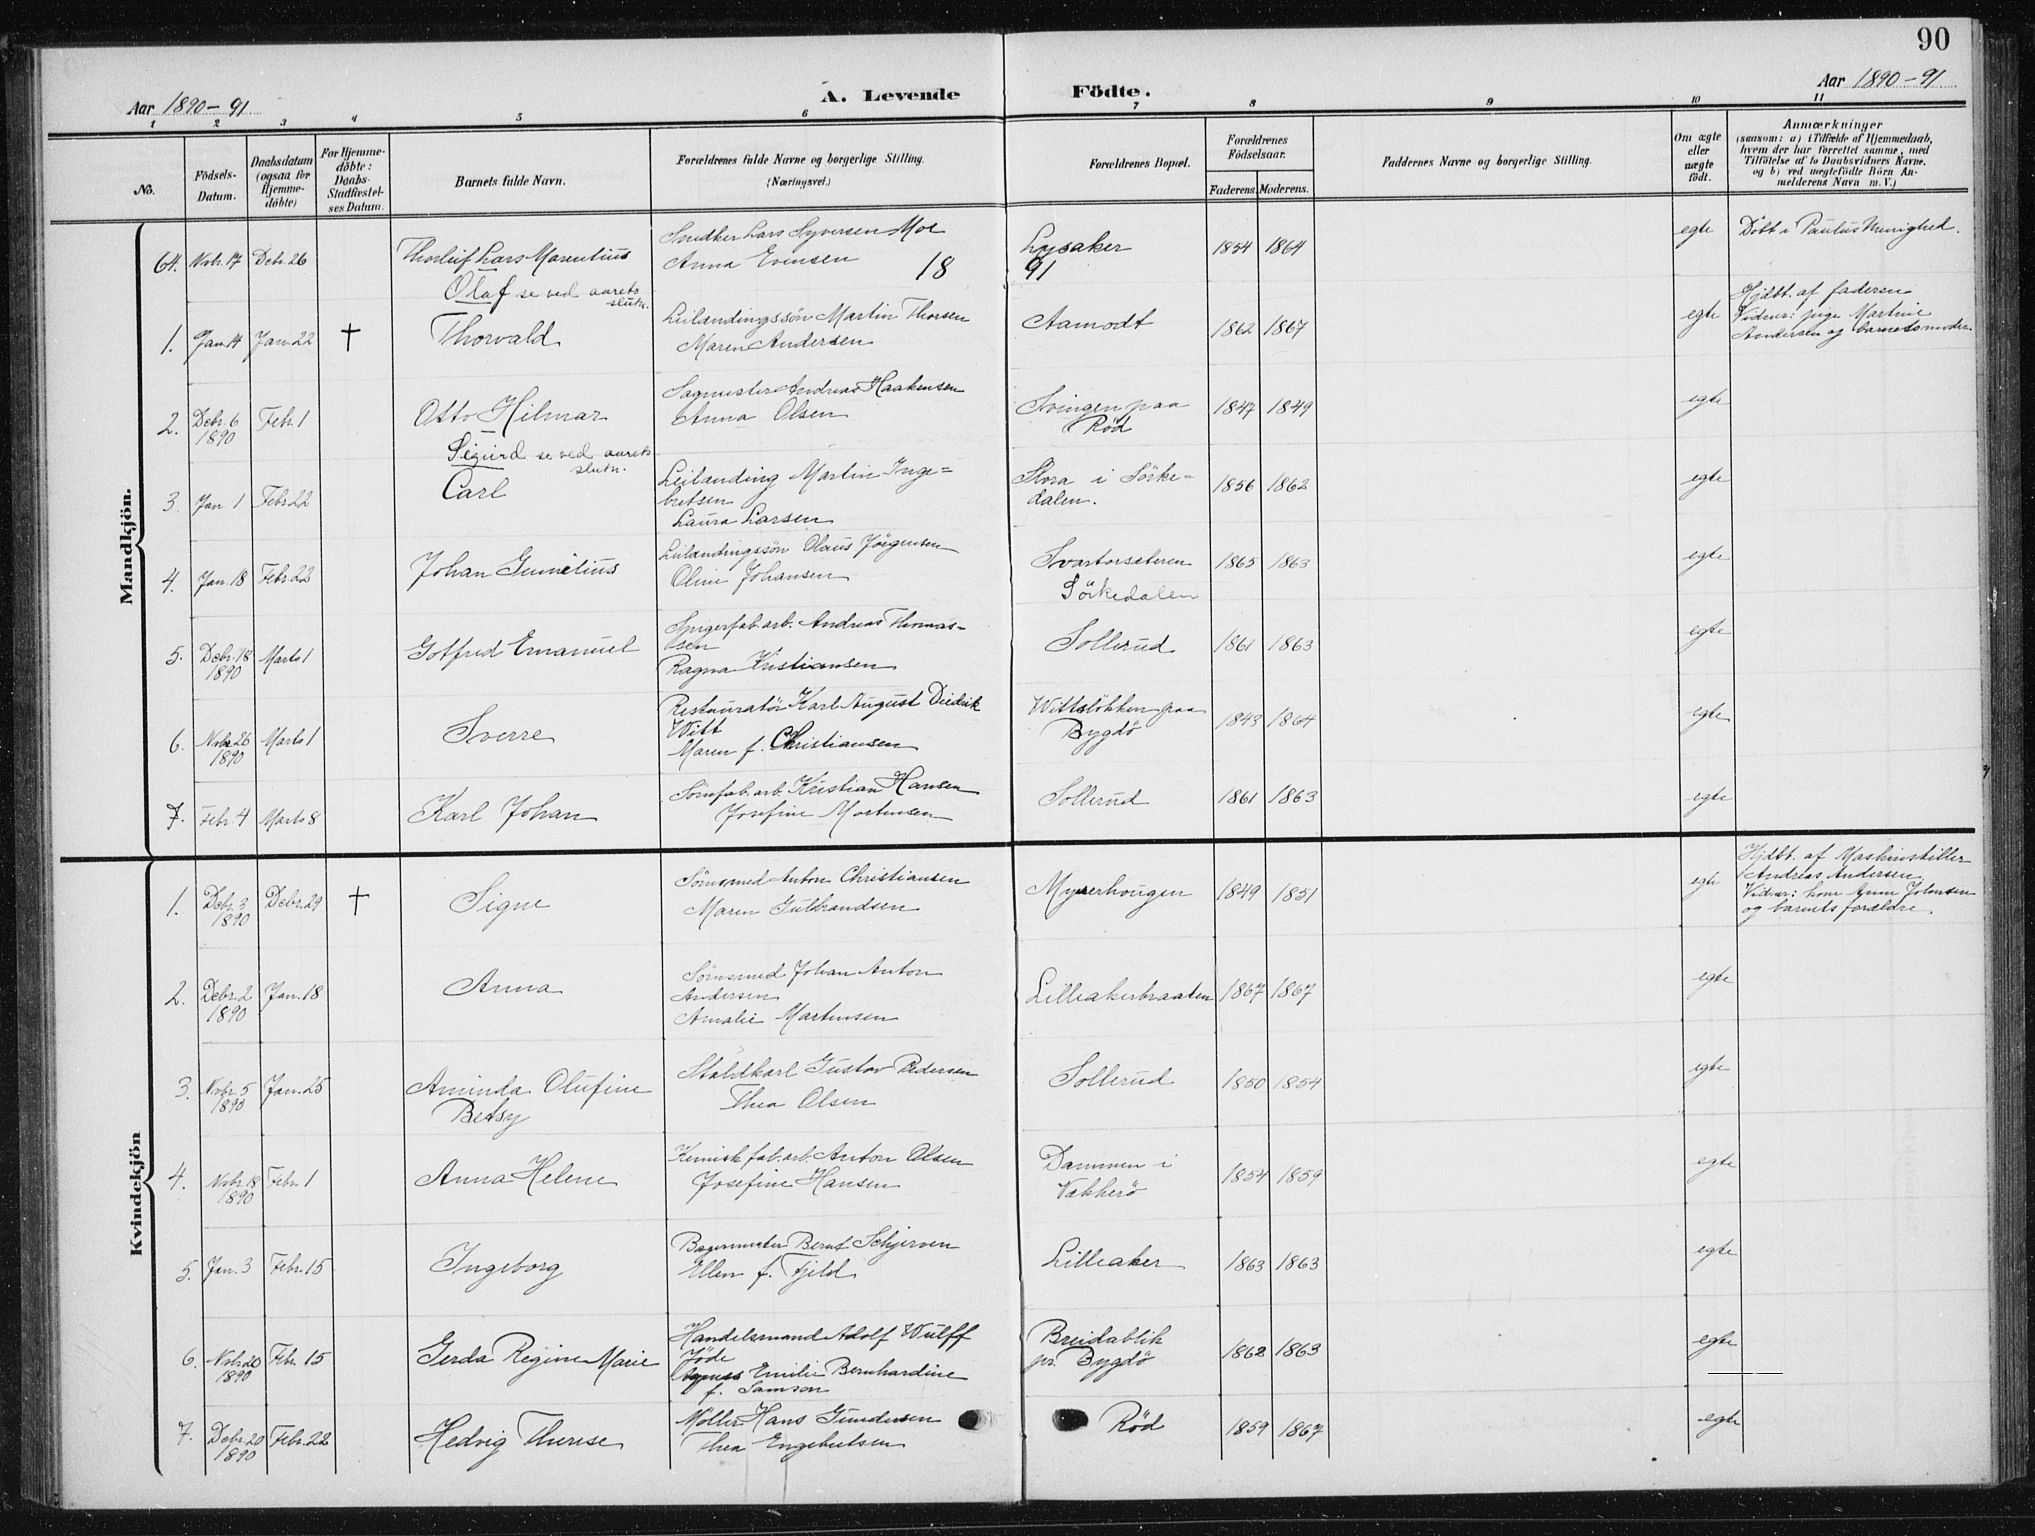 90
Aar 1890-91
A. Levende Födte.
Aar 1890-91
1 2 3 4 5 6 7 8 9 10 11
No.
Födsels-
Datum.
Daabsdatum
(ogsaa for
Hjemme-
döbte)
For Hjemme-
döbte:
Daabs-
Stadfæstel-
ses Datum.
Barnets fulde Navn.
Forældrenes fulde Navne og borgerlige Stilling.
(Næringsvei.)
Forældrenes Bopæl.
Forældrenes
Födselsaar.
Faderens. Moderens.
Faddernes Navne og borgerlige Stilling.
Om ægte
eller
uægte
födt.
Anmærkninger
(saasom: a) i Tilfælde af Hjemmedaab,
hvem der har forrettet samme, med
Tilföielse af to Daabsvidners Navne.
og b) ved uægtefödte Börn An-
melderens Navn m. V.)
Mandkjön.
64. Novbr. 17 Debr. 26 Thorleif Lars Marentius
Snedker Lars Syversen Moe
Anna Evensen
Lysaker 1854 1864 egte Döbt i Paulus Menighed.
18 91
Olaf se ved aarets
slutn.
1. Jan. 14 Jan. 22 † Thorvald
Leilændingssön Martin Thorsen
Maren Andersen
Aamodt 1862 1867 egte
Hjdbt. af faderen
Vidner: pige Martine
Andersen og barnets moder.
2. Debr. 6
1890
Febr. 1 Otto Hilmar
Sagmester Andreas Haakensen
Anna Olsen
Svingen paa
Röd
1847 1849 egte
Sigurd se ved aarets
slutn.
3. Jan. 1 Febr. 22 Carl
Leilænding Martin Inge=
bretsen
Laura Larsen
Flora i Sörke=
dalen.
1856 1862 egte
4. Jan. 18 Febr. 22 Johan
Leilændingssön Olaus Jörgensen
Oline Johansen
Svartorsæteren
Sörkedalen
1865 1863 egte
5. Debr. 18
1890
Marts 1 Gotfred Emanuel
Spigerfab. arb. Andreas Thomas-
sen
Ragna Kristiansen
Sollerud 1861 1863 egte
6. Novbr. 26
1890
Marts 1 Sverre
Restauratör Karl August Diedrik
Witt
Maren f. Christiansen
Wittslökken paa
Bygdö
1843 1864 egte
7. Febr. 4 Marts 8 Karl Johan
Sömfab. arb. Kristian Hansen
Josefine Mortensen
Sollerud 1861 1863 egte
Kvindekjön
1. Debr. 3
1890
Debr. 29 † Signe
Sömsmed Anton Christiansen
Maren Gulbrandsen
Myrerhougen 1849 1851 egte
Hjdbt. af Maskinstiller
Andreas Andersen.
Vidner: kone Johnsen
og barnets forældre.
2. Debr. 2
1890
Jan. 18 Anna
Sömsmed Johan Anton
Andersen
Amalie Martinsen
Lilleakerbraaten 1867 1867 egte
3. Novbr. 5
1890
Jan. 25 Aminda Olufine
Betsy
Staldkarl Gustav Pedersen
Thea Olsen
Sollerud 1850 1854 egte
4. Novbr. 18
1890
Febr. 1 Anna Helene
Kemisk fab. arb. Anton Olsen
Josefine Hansen
Dammen i
Vækkerö
1854 1859 egte
5. Jan. 3 Febr. 15 Ingeborg
Bagermester Bernt Schjerven
Ellen f. Fjeld
Lilleaker 1863 1863 egte
6. Novbr. 20
1890
Febr. 15 Gerda Regine Marie
Handelsmand Adolf Wulff
Jöde
Agnes Emilie Bernhardine
f. Samson
Breidablik
pr. Bygdö
1862 1863 egte
7. Debr. 20
1890
Febr. 22 Hedvig Therese
Möller Hans Gundersen
Thea Engebretsen
Röd 1859 1867 egte